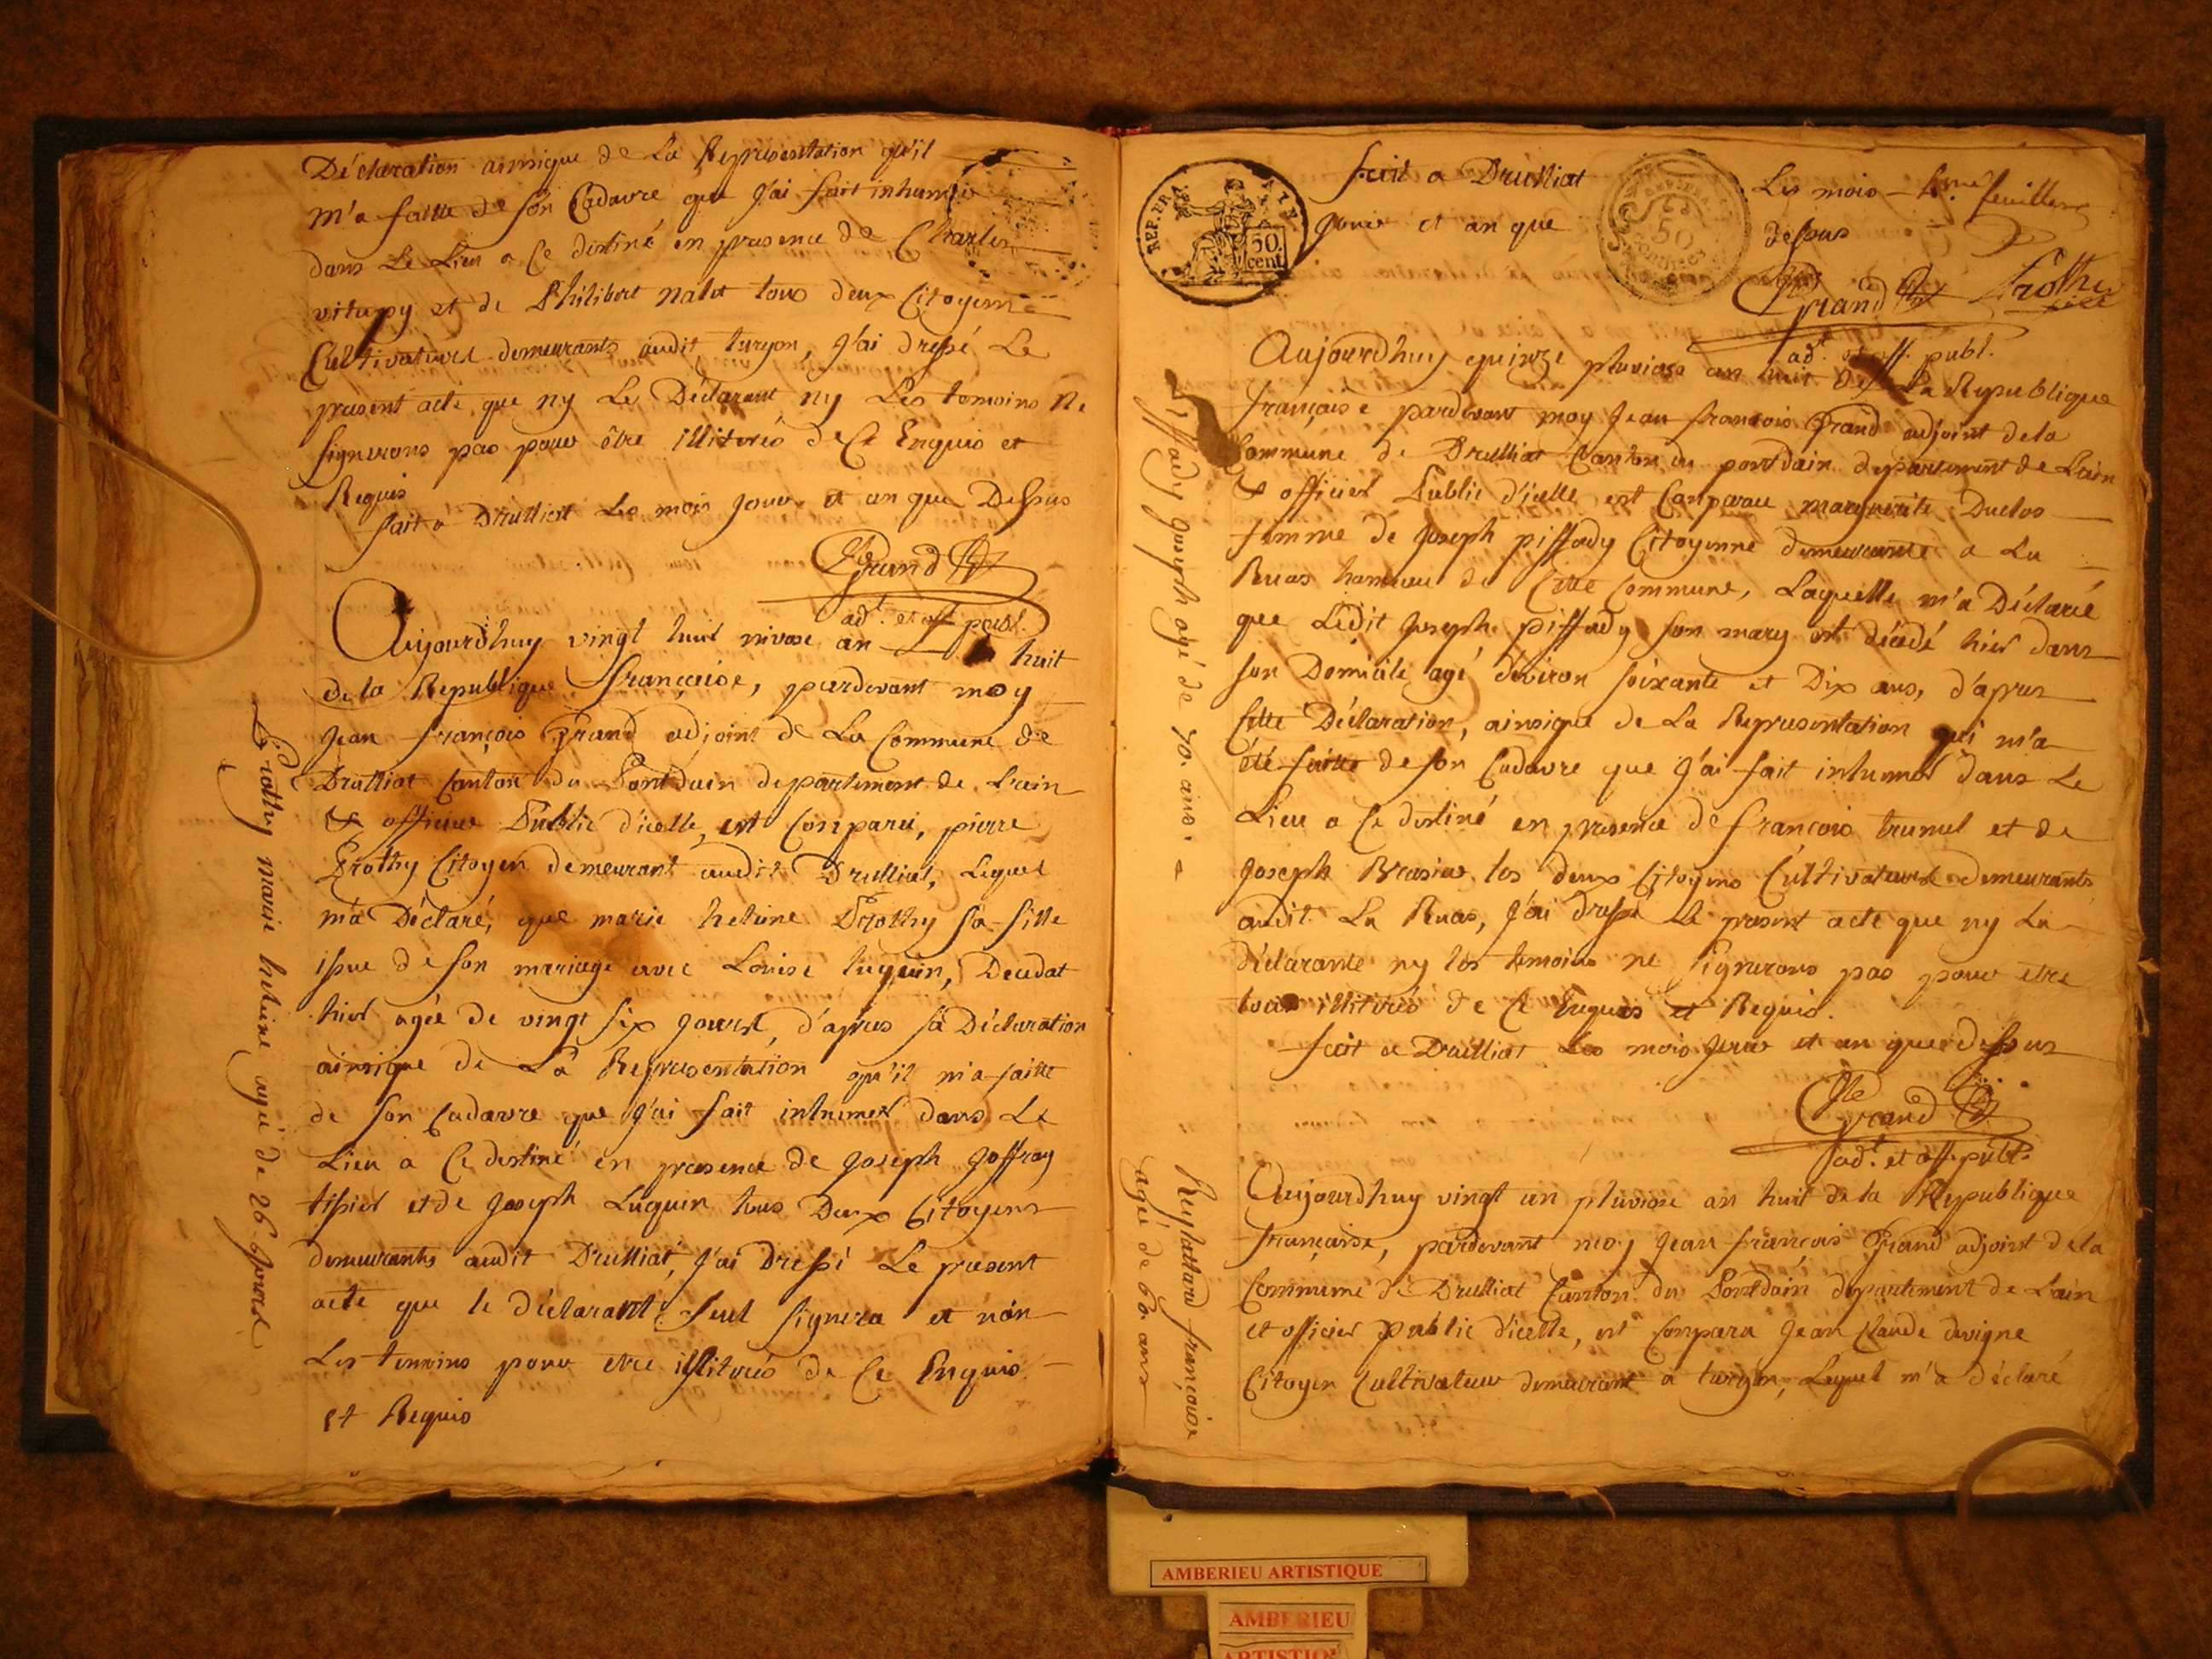 Déclaration ainsique de La Représentation qu'il
m'a faitte de son Cadavre que j'ai fait inhumer
dans Le Lieu a Ce destiné en presence de Charles
et de Philibert nalet tous deux Citoyens
Cultivateurs demeurants audit turgon, j'ai dressé Le
present acte que ny Le Déclarant ny Les temoins Ne
signerons pas pour être illiterés de Ce Enquis et
Requis
fait a Druilliat Les mois jour et an que Dessus
Grand
adt. et off. publ.
Aujourdhuy vingt huit nivose an huit
de la Republique française, pardevant moy
Jean françois Grand adjoint de La Commune de
Druilliat Canton du Pontdain departement de Lain
& officier Public d'icelle, est Comparu, pierre
Frothy Citoyen demeurant audit Druilliat, Lequel
m'a Déclaré, que marie heleine Frothy sa fille
issue de son mariage avec Louise luquin, Decedat
hier agée de vingt six jours, d'apres sa Déclaration
ainsique de La Représentation qu'il m'a faitte
de son Cadavre que j'ai fait inhumer dans Le
Lieu a Ce destiné en presence de joseph joffray
tissier et de joseph Luquin tous Deux Citoyens
demeurants audit Druilliat, j'ai Dressé Le present
acte que le déclarant seul signera et non
Les temoins pour etre illiterés de Ce Enquis
et Requis
Frothy marie heleine agée de 26 jours
REP. FRA.
50.
cent.
50
CENTIMES
fait a Druilliat Les mois 4me. feuillet
jour et an que dessus
Grand Frothy
adt. et off. publ.
Aujourdhuy quinze pluviose an huit de La Republique
française pardevant moy Jean françois Grand adjoint de la
Commune de Druilliat Canton du pontdain departement de Lain
& officier Public d'icelle est Comparue marguerite Duclos
femme de Joseph piffady Citoyenne demeurante a La
Ruas hameau de Cette Commune, Laquelle m'a Déclaré
que Ledit Joseph piffady son mary est décédé hier dans
son Domicile agé d'environ soixante et Dix ans, d'apres
cette Déclaration, ainsique de La Representation qui m'a
été faitte de son Cadavre que j'ai fait inhumer dans Le
Lieu a Ce destiné en presence de françois trumel et de
Joseph Brasier les deux Citoyens Cultivateurs demeurants
audit La Ruas, j'ai dressé Le present acte que ny La
déclarante ny les temoins ne signerons pas pour etre
tous illiterés de Ce Enquis et Requis.
fait a Druilliat Les mois jour et an que dessus
Grand
adt. et off. publ.
Aujourdhuy vingt un pluviose an huit de la Republique
française, pardevant moy Jean françois Grand adjoint de la
Commune de Druilliat Canton du Pontdain departement de Lain
et officier public d'icelle, est Comparu Jean Claude
Citoyen Cultivateur demeurant a turgon, Lequel m'a déclaré
piffady joseph agé de 70. ans.
françoise
agée de 60. ans
AMBERIEU ARTISTIQUE
AMBERIEU
ARTISTIQUE